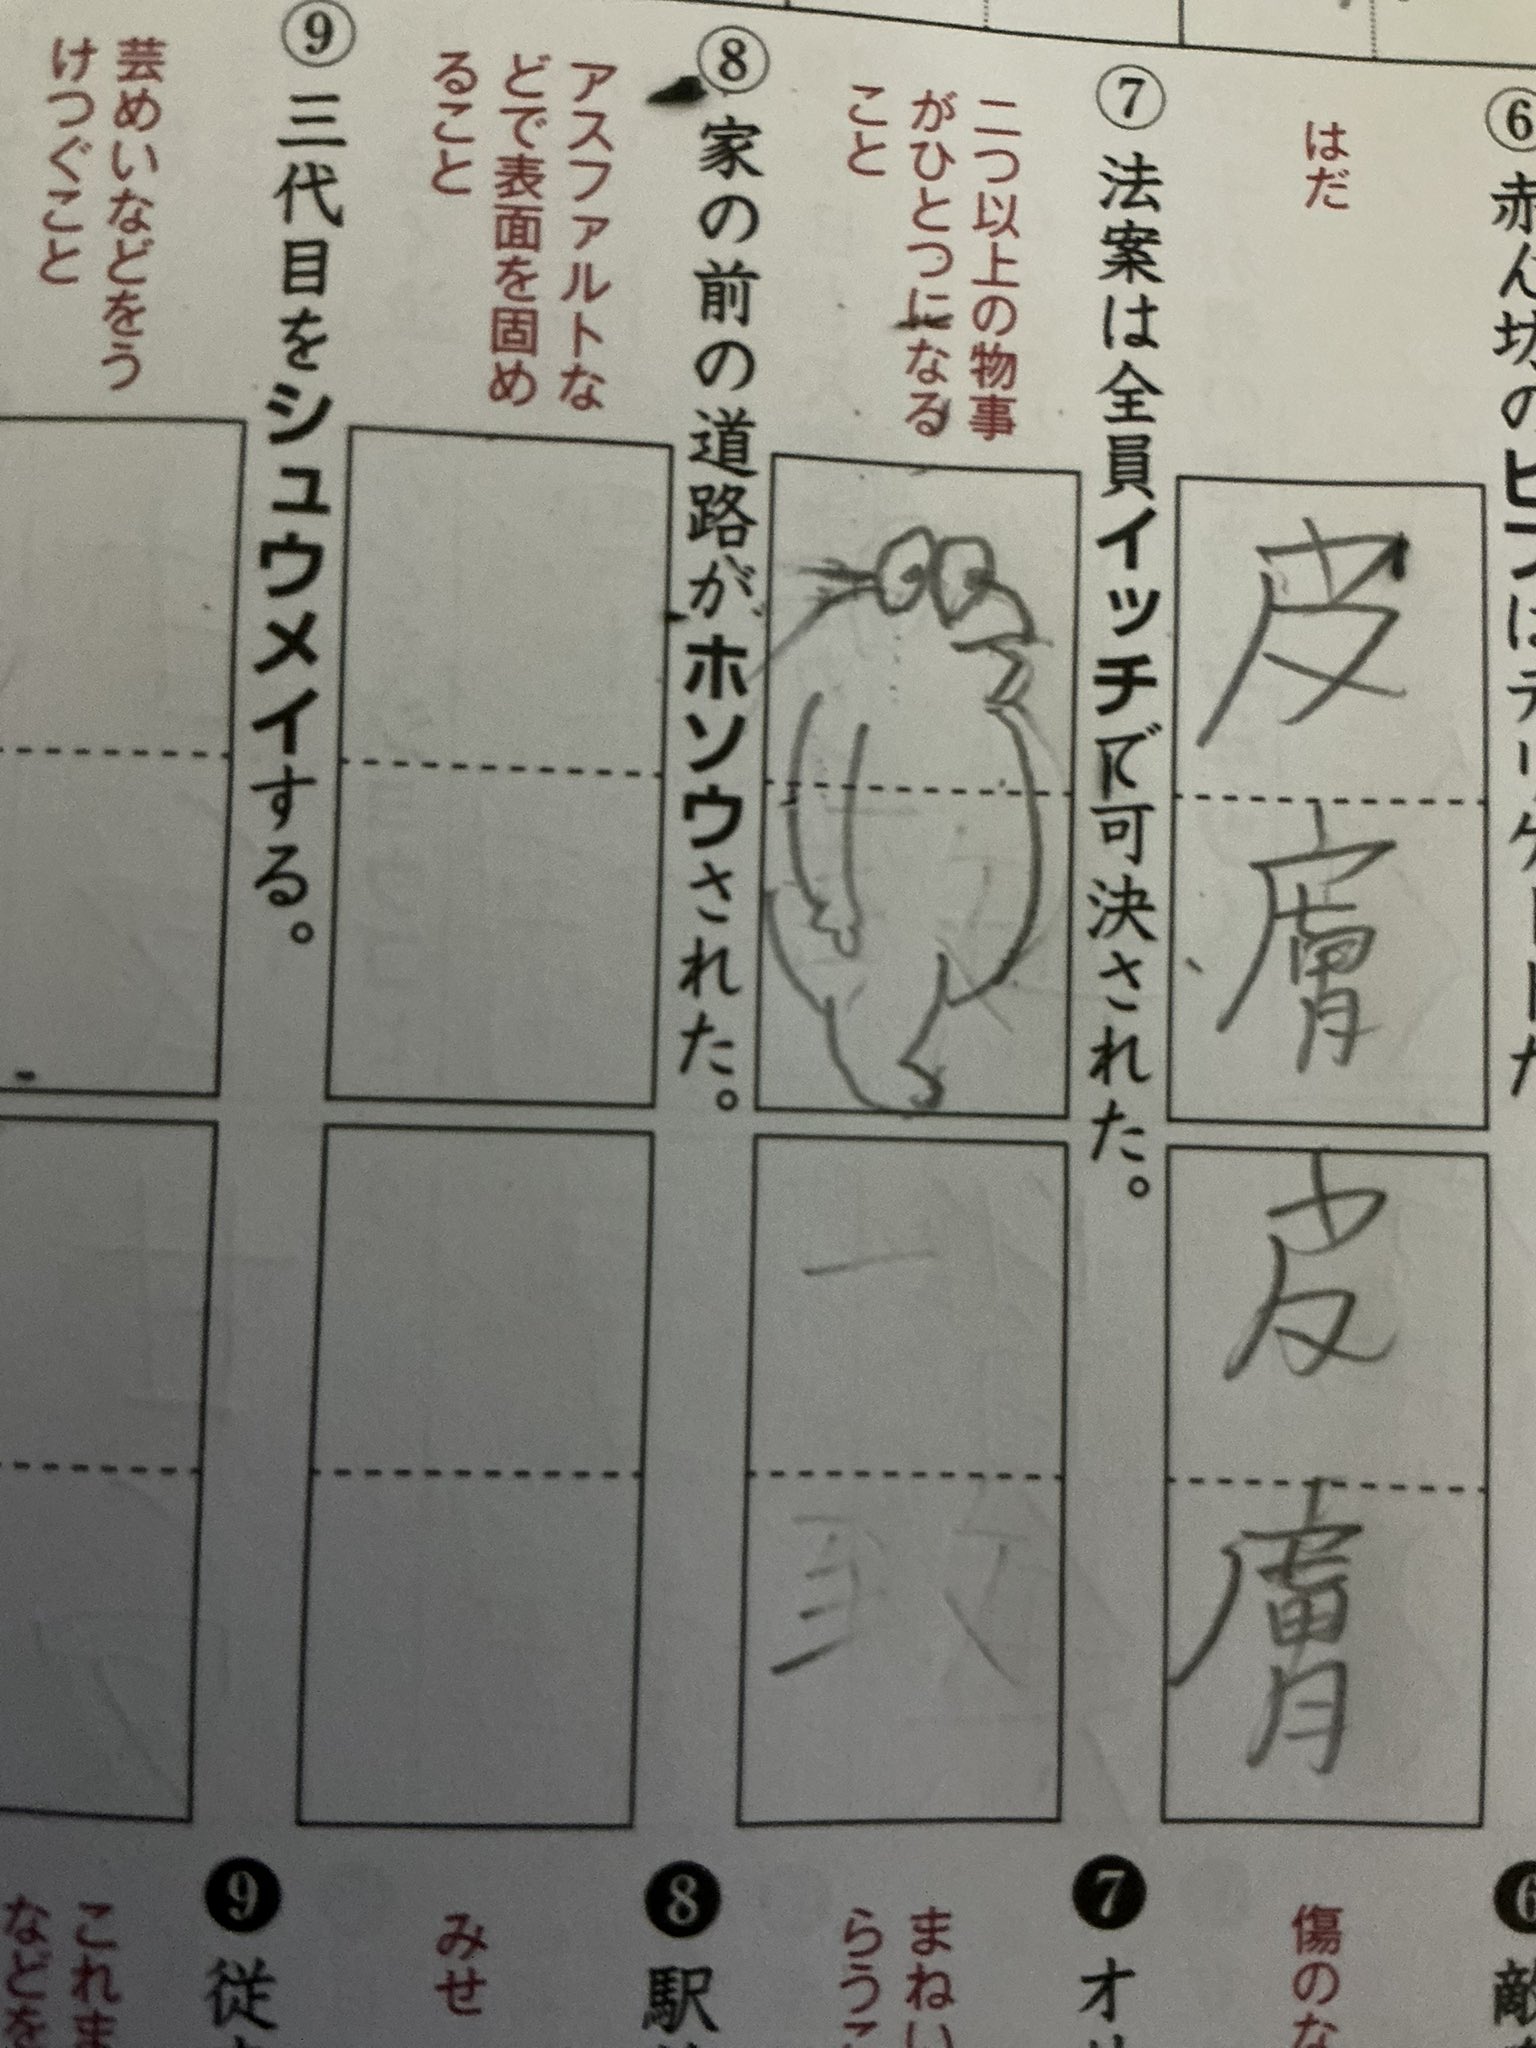 ⑥ 赤ん坊のヒフはデリケートだ
はだ
皮膚
皮膚
⑦ 法案は全員イッチで可決された。
二つ以上の物事
がひとつになる
こと
一
⑧ 家の前の道路がホソウされた。
アスファルトな
どで表面を固め
ること
⑨ 三代目をシュウメイする。
芸めいなどをう
けつぐこと
❻ 敵
傷のな
❼ オリ
まねい
らうこ
❽ 駅
みせ
❾ 従
これま
などを